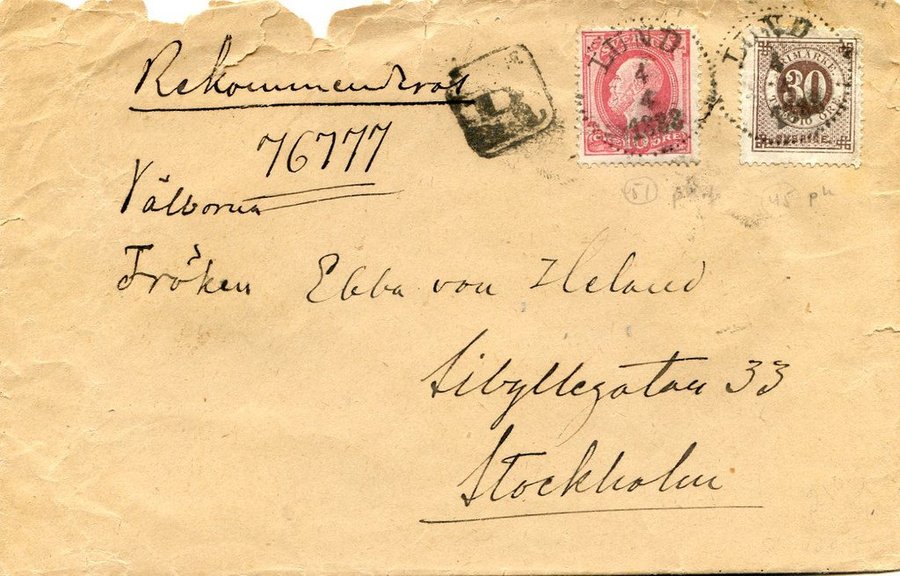 Rekommenderas
76777
Välborna
Fröken Ebba von Heland
Sibyllegatan 33
Stockholm
R
LUND
4
4
1888
ÖRE
LUND
4
30
SVERIGE.
51
45 ph